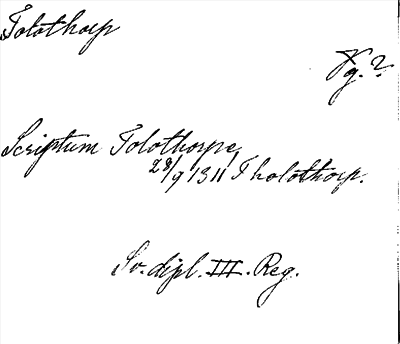 Tolothorp
Vg.?
Scriptum Tolothorpe,
28/9 1311 Tholothorp.
Sv. dipl. III. Reg.